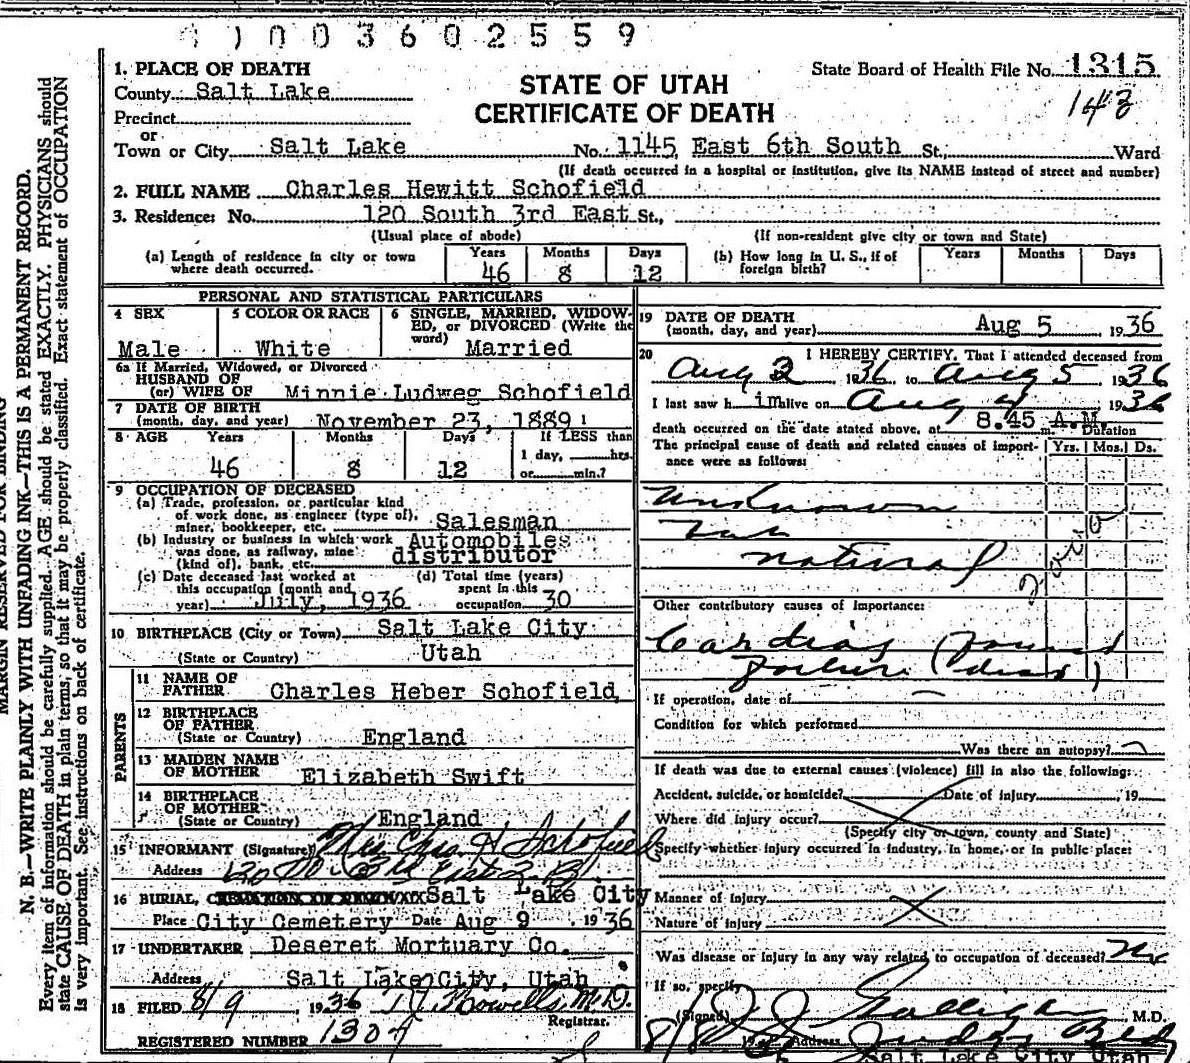 1003602559
1. PLACE OF DEATH
County Salt Lake
Precinct
or
Town or City Salt Lake No. 1145 East 6th South St., Ward
STATE OF UTAH
CERTIFICATE OF DEATH
State Board of Health File No. 1315
143
(If death occurred in a hospital or institution, give its NAME instead of street and number)
2. FULL NAME Charles Hewitt Schofield
3. Residence: No. 120 South 3rd East St.,
(Usual place of abode) (If non-resident give city or town and State)
(a) Length of residence in city or town where death occurred. Years 46 Months 8 Days 12
(b) How long in U. S., if of foreign birth? Years Months Days
PERSONAL AND STATISTICAL PARTICULARS
4 SEX Male
5 COLOR OR RACE White
6 SINGLE, MARRIED, WIDOWED, or DIVORCED (Write the word) Married
6a If Married, Widowed, or Divorced
HUSBAND OF
(or) WIFE OF Minnie Ludweg Schofield
7 DATE OF BIRTH
(month, day, and year) November 23, 1889
8 AGE Years 46 Months 8 Days 12 If LESS than 1 day, hrs. or min.?
9 OCCUPATION OF DECEASED
(a) Trade, profession, or particular kind of work done, as engineer (type of), miner, bookkeeper, etc. Salesman
(b) Industry or business in which work was done, as railway, mine (kind of), bank, etc. Automobiles distributor
(c) Date deceased last worked at this occupation (month and year) July, 1936
(d) Total time (years) spent in this occupation 30
10 BIRTHPLACE (City or Town) Salt Lake City
(State or Country) Utah
PARENTS
11 NAME OF FATHER Charles Heber Schofield
12 BIRTHPLACE OF FATHER
(State or Country) England
13 MAIDEN NAME OF MOTHER Elizabeth Swift
14 BIRTHPLACE OF MOTHER
(State or Country) England
15 INFORMANT (Signature) Mrs Chas H Schofield
Address 120 So 3rd East
16 BURIAL, CREMATION OR REMOVAL Salt Lake City
Place City Cemetery Date Aug 9 1936
17 UNDERTAKER Deseret Mortuary Co.
Address Salt Lake City, Utah
18 FILED 8/9 1936 Howells M.D.
Registrar.
REGISTERED NUMBER 1304
19 DATE OF DEATH
(month, day, and year) Aug 5 1936
20 I HEREBY CERTIFY, That I attended deceased from
Aug 2, 1936 to Aug 5, 1936
I last saw h im alive on Aug 4 1936
death occurred on the date stated above, at 8.45 A.M. m.
Duration
The principal cause of death and related causes of importance were as follows: Yrs. Mos. Ds.
Unknown
natural
Other contributory causes of importance:
Cardiac
failure
If operation, date of
Condition for which performed
Was there an autopsy?
If death was due to external causes (violence) fill in also the following:
Accident, suicide, or homicide? Date of injury , 19
Where did injury occur?
(Specify city or town, county and State)
Specify whether injury occurred in industry, in home, or in public place:
Manner of injury
Nature of injury
Was disease or injury in any way related to occupation of deceased? No
If so, specify
(Signed) M.D.
8/8 1936 Address Judge Bldg
Salt Lake City Utah
MARGIN RESERVED FOR BINDING
N. B.—WRITE PLAINLY WITH UNFADING INK—THIS IS A PERMANENT RECORD.
Every item of information should be carefully supplied. AGE should be stated EXACTLY. PHYSICIANS should
state CAUSE OF DEATH in plain terms, so that it may be properly classified. Exact statement of OCCUPATION
is very important. See instructions on back of certificate.